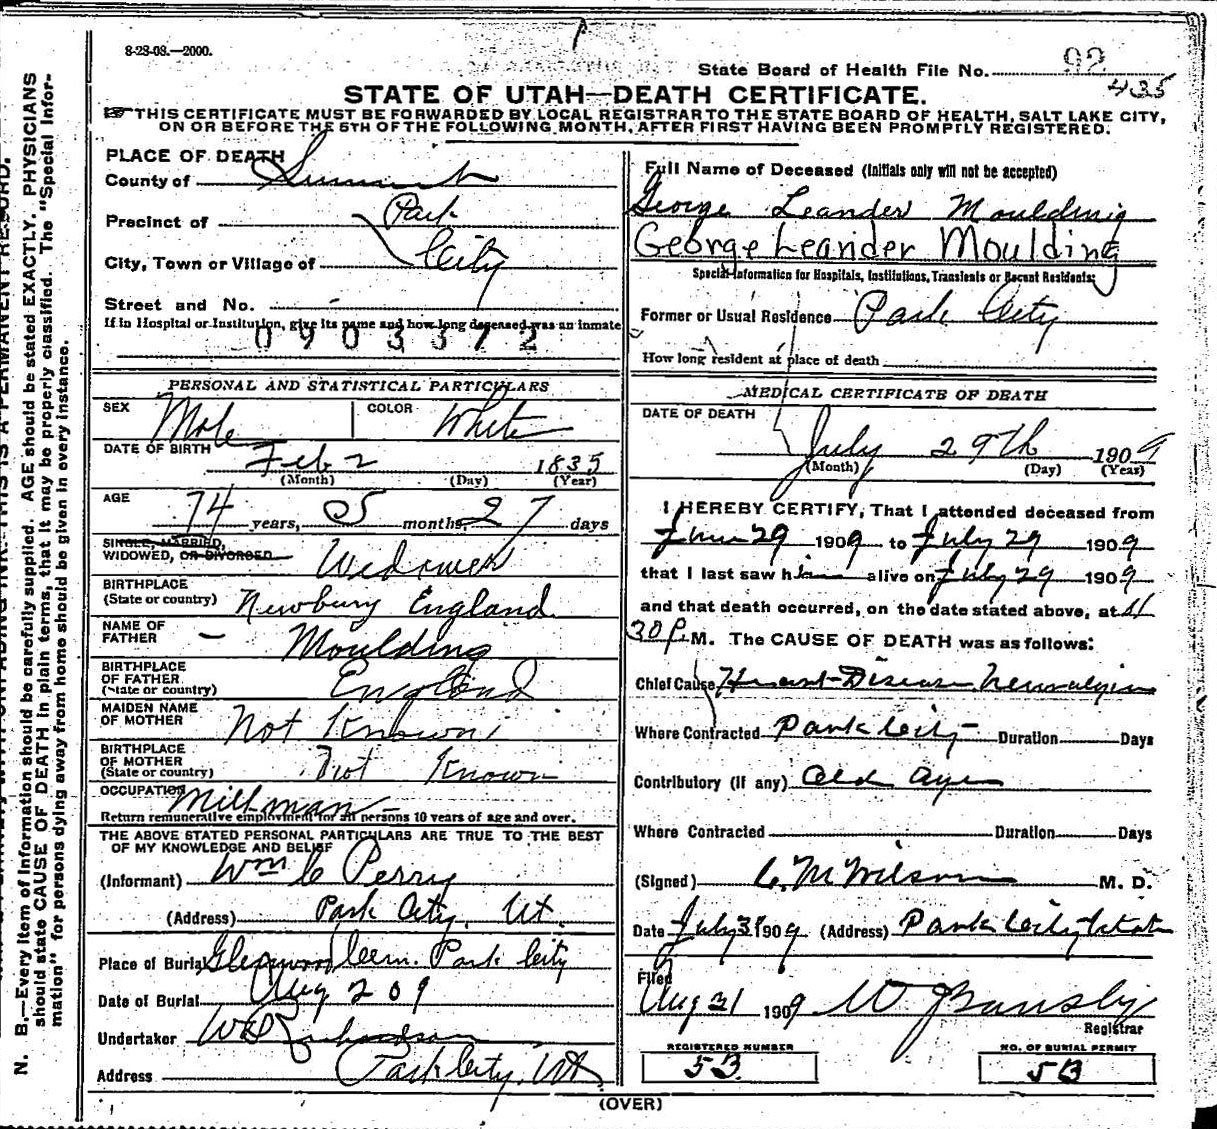 8-23-08.—2000.
State Board of Health File No. 92
435
STATE OF UTAH—DEATH CERTIFICATE.
☞THIS CERTIFICATE MUST BE FORWARDED BY LOCAL REGISTRAR TO THE STATE BOARD OF HEALTH, SALT LAKE CITY,
ON OR BEFORE THE 5TH OF THE FOLLOWING MONTH, AFTER FIRST HAVING BEEN PROMPTLY REGISTERED.
PLACE OF DEATH
County of Summit
Precinct of Park
City, Town or Village of City
Street and No. -
If in Hospital or Institution, give its name and how long deceased was an inmate
0903372
PERSONAL AND STATISTICAL PARTICULARS
SEX Male COLOR White
DATE OF BIRTH
Feb 2 1835
(Month) (Day) (Year)
AGE
74 years, 5 months, 27 days
SINGLE, MARRIED,
WIDOWED, OR DIVORCED Widower
BIRTHPLACE
(State or country) Newbury England
NAME OF
FATHER — Moulding
BIRTHPLACE
OF FATHER
(State or country) England
MAIDEN NAME
OF MOTHER Not Known
BIRTHPLACE
OF MOTHER
(State or country) Not Known
OCCUPATION Millman -
Return remunerative employment for all persons 10 years of age and over.
THE ABOVE STATED PERSONAL PARTICULARS ARE TRUE TO THE BEST
OF MY KNOWLEDGE AND BELIEF
(Informant) Wm C Perry
(Address) Park City, Ut.
Place of Burial Glenwood Cem. Park City
Date of Burial Aug 2 09
Undertaker W D Richardson
Address Park City, Ut
Full Name of Deceased (Initials only will not be accepted)
George Leander Moulding
George Leander Moulding
Special Information for Hospitals, Institutions, Transients or Recent Residents:
Former or Usual Residence Park City
How long resident at place of death
MEDICAL CERTIFICATE OF DEATH
DATE OF DEATH
July 29th 1909
(Month) (Day) (Year)
I HEREBY CERTIFY, That I attended deceased from
June 29 1909 to July 29 1909
that I last saw him alive on July 29 1909
and that death occurred, on the date stated above, at 11
30 P. M. The CAUSE OF DEATH was as follows:
Chief Cause Heart Disease Neuralgia
Where Contracted Park City - Duration Days
Contributory (if any) Old Age
Where Contracted Duration Days
(Signed) C. M Wilson M. D.
Date July 31 1909 (Address) Park City Utah
Filed
Aug 21 1909 W
Registrar
REGISTERED NUMBER
53
NO. OF BURIAL PERMIT
53
(OVER)
N. B.—Every item of information should be carefully supplied. AGE should be stated EXACTLY. PHYSICIANS
should state CAUSE OF DEATH in plain terms, that it may be properly classified. The "Special Infor-
mation" for persons dying away from home should be given in every instance.